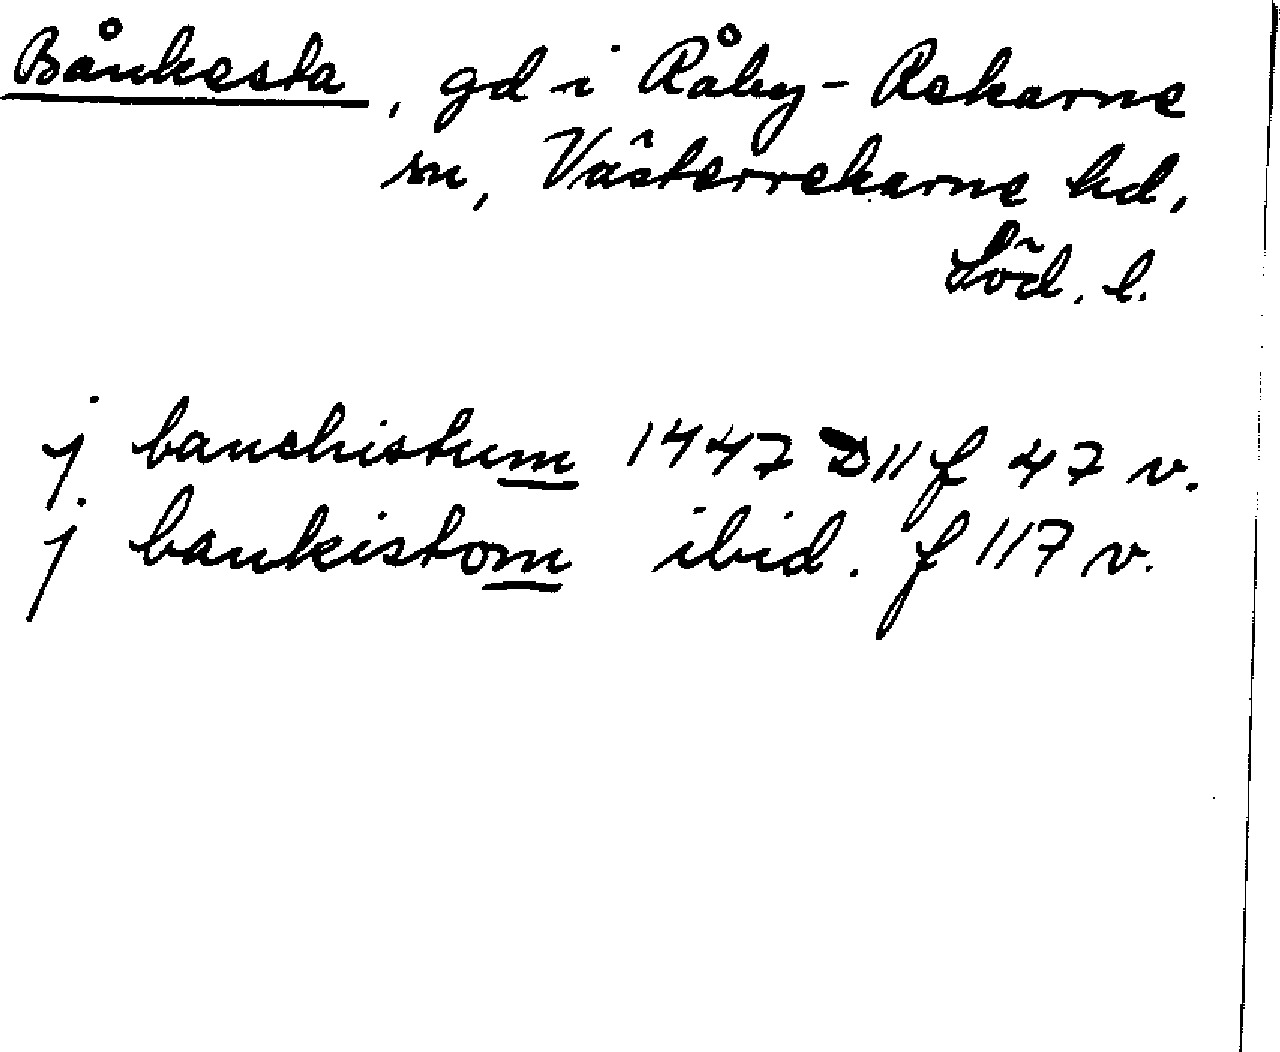 Bånkesta, gd i Råby-Rekarne
sn, Västerrekarne hd,
Söd. l.
j banchistum 1447 D11 f 47 v.
j bankistom ibid. f 117 v.